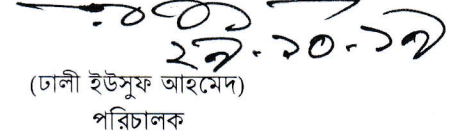 ২৯.১০.১৯
(ঢালী ইউসুফ আহমেদ)
পরিচালক